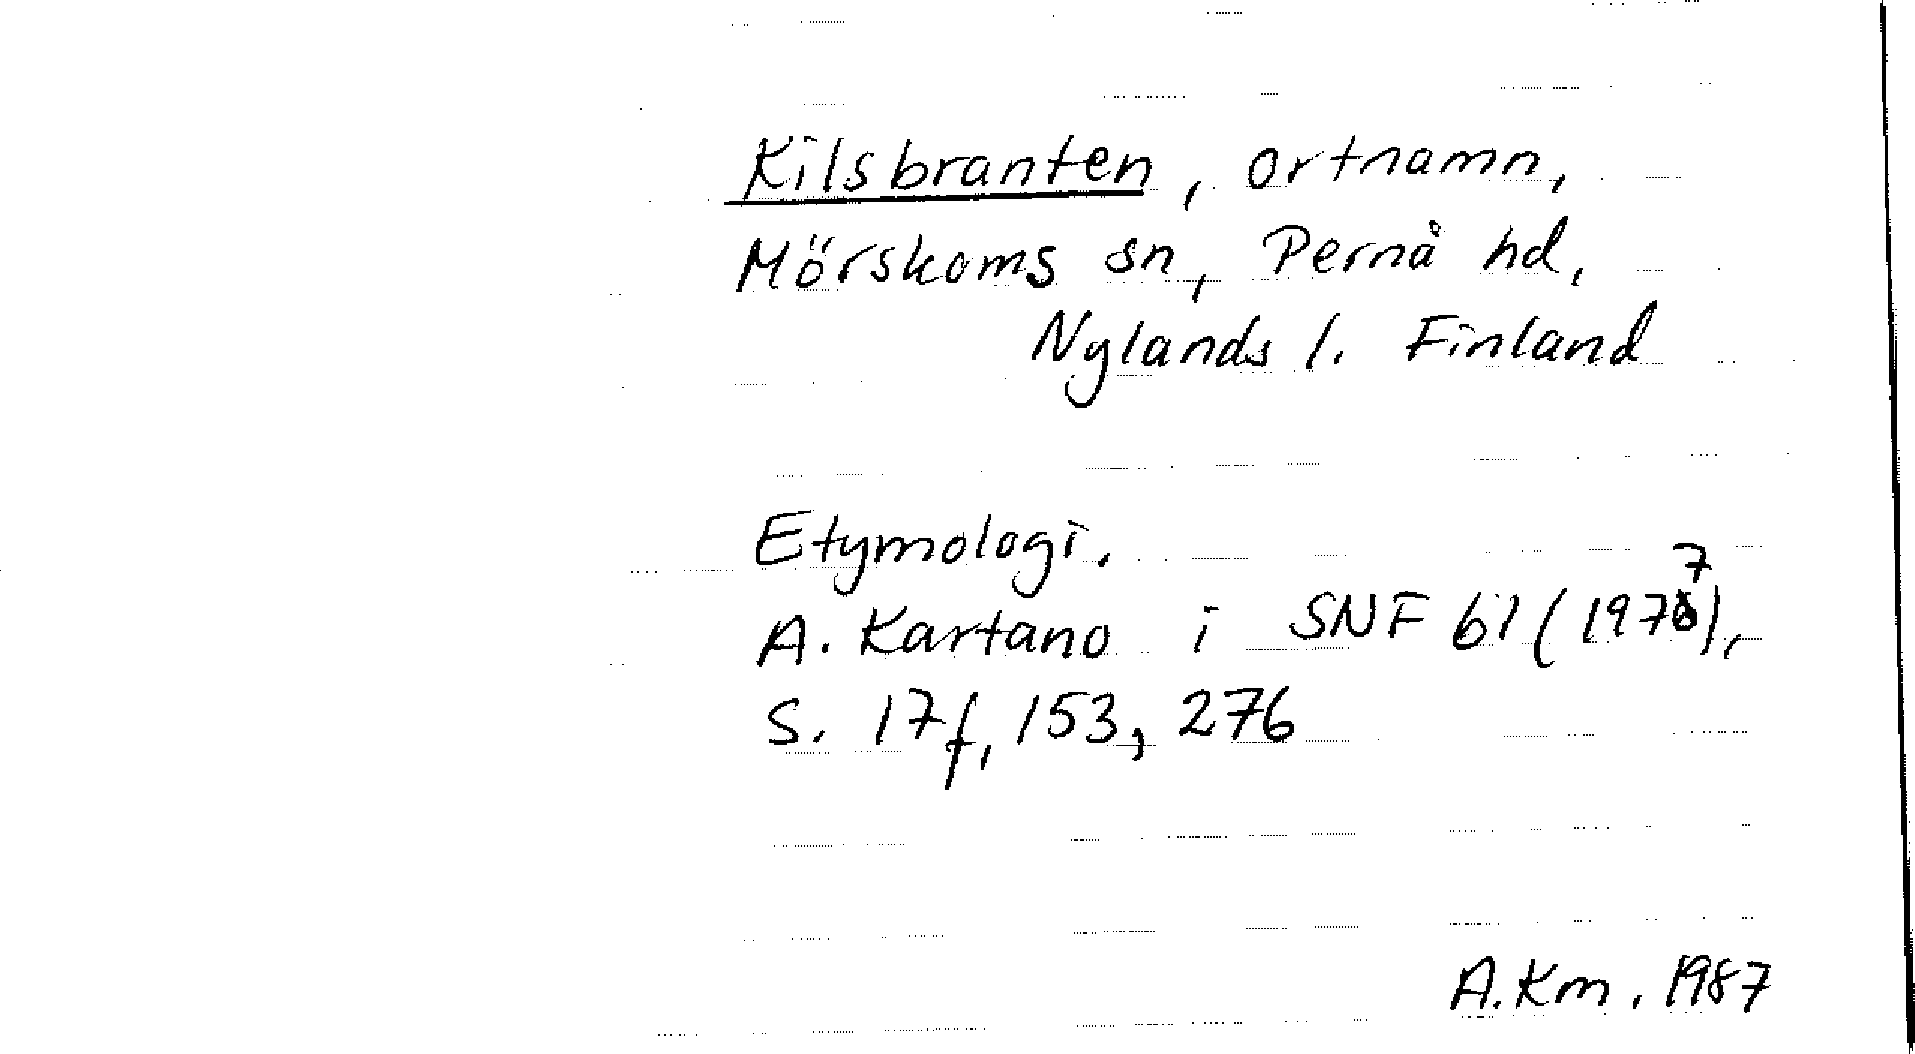 Kilsbranten, ortnamn,
Mörskoms sn, Pernå hd,
Nylands l. Finland
Etymologi.
A. Kartano i SNF 61 (1977),
S. 17f, 153, 276
A.Km. 1987